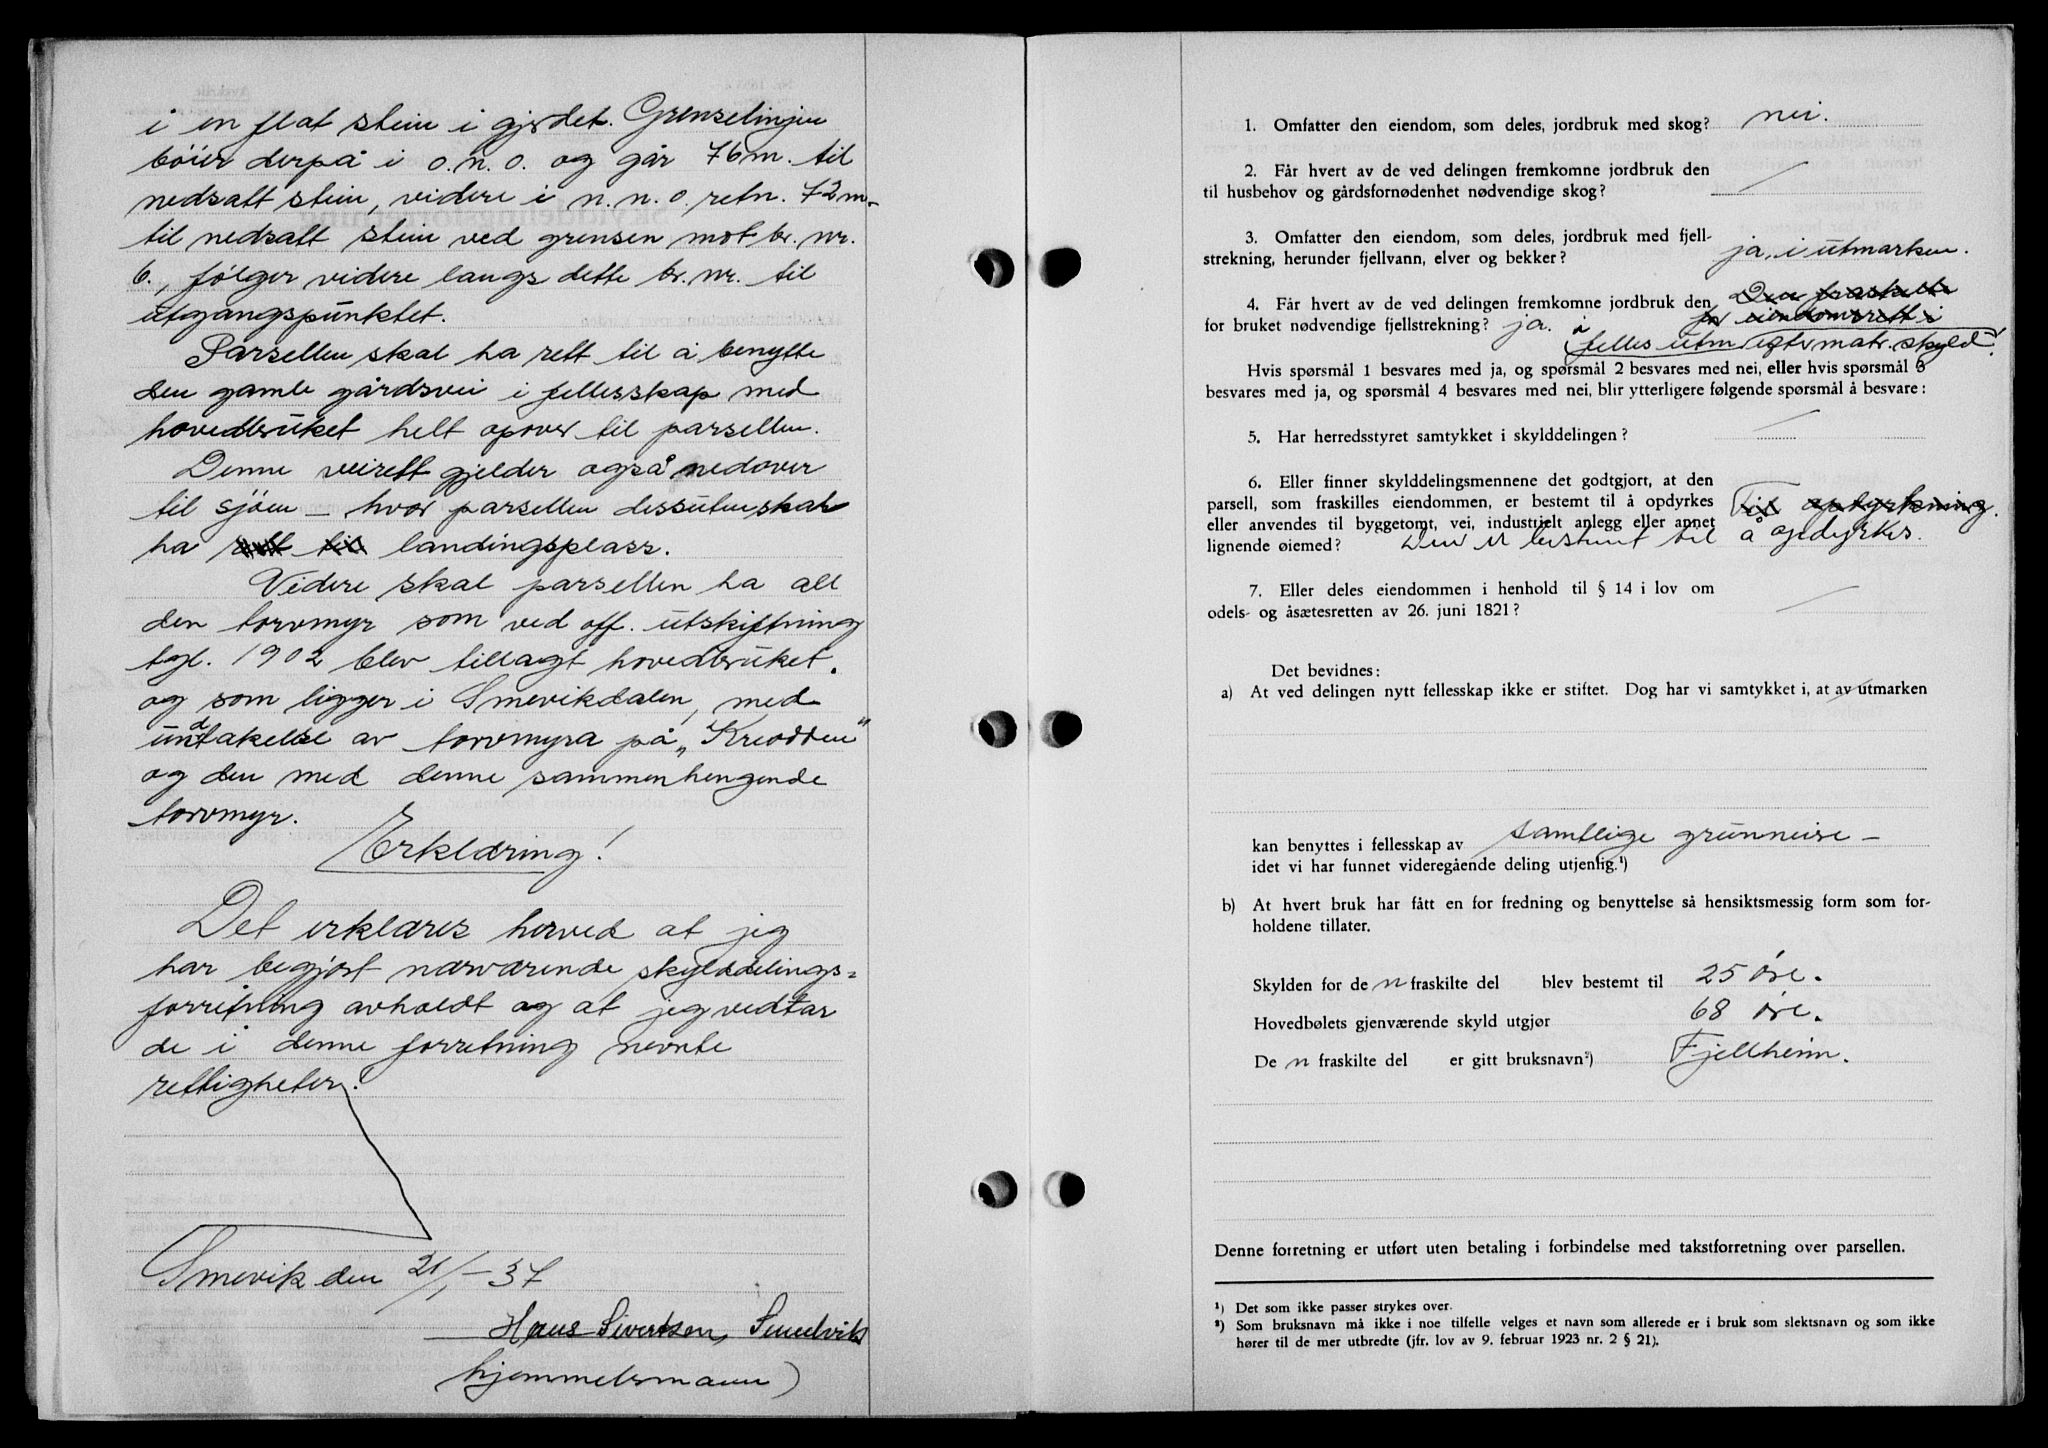 i en flat stein i gjerdet. Grenselinjen
böier derpå i o.n.o. og går 76 m. til
nedsatt stein, videre i n.n.o. retn. 72 m.
til nedsatt stein ved grensen mot br. nr.
6., følger videre langs dette br. nr. til
utgangspunktet.
Parsellen skal ha rett til å benytte
den gamle gårdsvei i fellesskap med
hovedbruket helt opover til parsellen.
Denne veirett gjelder også nedover
til sjöen – hvor parsellen dessuten skal
ha rett til landingsplass.
Videre skal parsellen ha all
den torvmyr som ved off. utskiftning
tgl. 1902 blev tillagt hovedbruket.
og som ligger i Smevikdalen, med
undtakelse av torvmyra på „Kreodden"
og den med denne sammenhengende
torvmyr.
Erklæring!
Det erklæres herved at jeg
har begjørt nærværende skylddelings=
forretning avholdt og at jeg vedtar
de i denne forretning nevnte
rettigheter.
Smevik den 21/1 – 37
Hans Sivertsen, Smedvik
hjemmelsmann)
1. Omfatter den eiendom, som deles, jordbruk med skog? nei.
2. Får hvert av de ved delingen fremkomne jordbruk den
til husbehov og gårdsfornødenhet nødvendige skog?
3. Omfatter den eiendom, som deles, jordbruk med fjell-
strekning, herunder fjellvann, elver og bekker? ja, i utmarken.
4. Får hvert av de ved delingen fremkomne jordbruk den Den fraskilte
for bruket nødvendige fjellstrekning? ja. i får eiendomsrett i
felles utm. efter matr. skyld!
Hvis spørsmål 1 besvares med ja, og spørsmål 2 besvares med nei, eller hvis spørsmål 3
besvares med ja, og spørsmål 4 besvares med nei, blir ytterligere følgende spørsmål å besvare:
5. Har herredsstyret samtykket i skylddelingen?
6. Eller finner skylddelingsmennene det godtgjort, at den
parsell, som fraskilles eiendommen, er bestemt til å opdyrkes Til opdyrkning.
eller anvendes til byggetomt, vei, industrielt anlegg eller annet
lignende øiemed? Den er bestemt til å opdyrkes.
7. Eller deles eiendommen i henhold til § 14 i lov om
odels- og åsætesretten av 26. juni 1821?
Det bevidnes:
a) At ved delingen nytt fellesskap ikke er stiftet. Dog har vi samtykket i, at av utmarken
kan benyttes i fellesskap av samtlige grunneire –
idet vi har funnet videregående deling utjenlig.¹)
b) At hvert bruk har fått en for fredning og benyttelse så hensiktsmessig form som for-
holdene tillater.
Skylden for de n fraskilte del blev bestemt til 25 øre.
Hovedbølets gjenværende skyld utgjør 68 øre.
De n fraskilte del er gitt bruksnavn²) Fjellheim.
Denne forretning er utført uten betaling i forbindelse med takstforretning over parsellen.
¹) Det som ikke passer strykes over.
²) Som bruksnavn må ikke i noe tilfelle velges et navn som allerede er i bruk som slektsnavn og som ikke
hører til de mer utbredte (jfr. lov av 9. februar 1923 nr. 2 § 21).